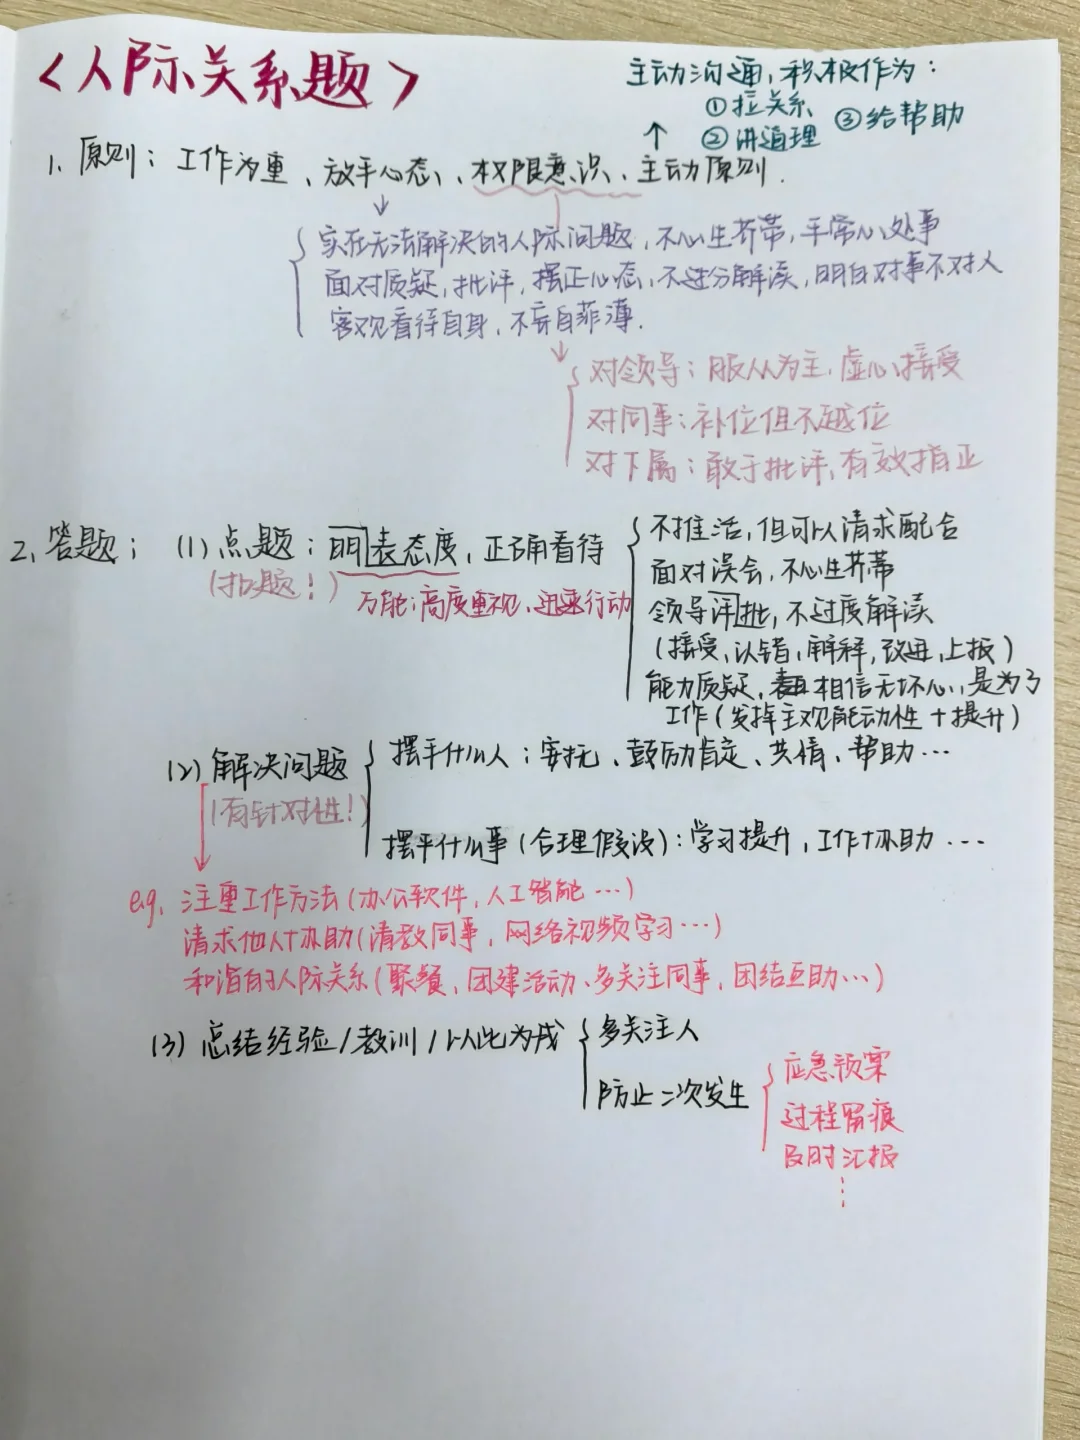 <人际关系题>
主动沟通,积极作为:
①拉关系
②讲道理 ③给帮助
1. 原则: 工作为重、放平心态、权限意识、主动原则.
实在无法解决的人际问题,不心生芥蒂,平常心处事
面对质疑,批评,摆正心态,不过分解读,明白对事不对人
客观看待自身,不妄自菲薄.
对领导:服从为主,虚心接受
对同事:补位但不越位
对下属:敢于批评,有效指正
2. 答题: (1)点题:明表态度,正确看待
(扣题!)
万能:高度重视、迅速行动
不推活,但可以请求配合
面对误会,不心生芥蒂
领导评批,不过度解读
(接受,认错,解释,改进,上报)
能力质疑,相信无坏心,是为了
工作(发挥主观能动性+提升)
(2)解决问题
(有针对性!)
摆平什么人:安抚、鼓励肯定、共情、帮助…
摆平什么事(合理假设):学习提升,工作协助…
e.g. 注重工作方法(办公软件,人工智能…)
请求他人协助(请教同事,网络视频学习…)
和谐的人际关系(聚餐、团建活动、多关注同事,团结互助…)
(3)总结经验/教训/以此为戒
多关注人
防止二次发生
应急预案
过程留痕
及时汇报
⋮